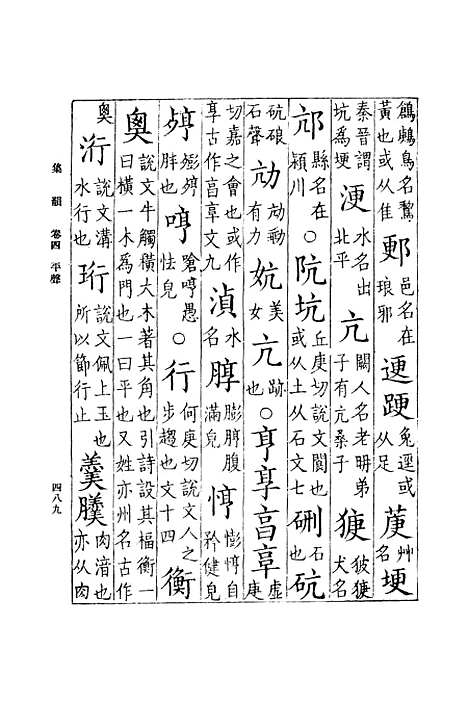 鳥名鶩黃也或从隹 郠 邑名在琅邪 兔逕或从足 莄 艸名 埂
秦晉謂坑爲埂 浭 水名出北平 亢 闕人名老耼弟子有亢桑子 㹴 彼㹴犬名
邟 縣名在潁川 ○ 阬坑 丘庚切說文閬也或从土从石文七 硎 石也 砊
砊硠石聲 劥 劥勆有力 妔 美女 亢 跡也 ○ 亨享亯 虛庚
切嘉之會也或作享古作亯文九 湞 水名 脝 膨脝腹滿皃 悙 憉悙自矜健皃
胖也 哼 嗆哼愚怯皃 ○ 行 何庚切說文人之步趨也文十四 衡
說文牛觸橫大木著其角也引詩設其福衡一曰橫一木爲門也一曰平也又姓亦州名古作
洐 說文溝水行也 珩 說文佩上玉也所以節行止 羹 肉湆也亦从肉
集韻 卷四 平聲 四八九